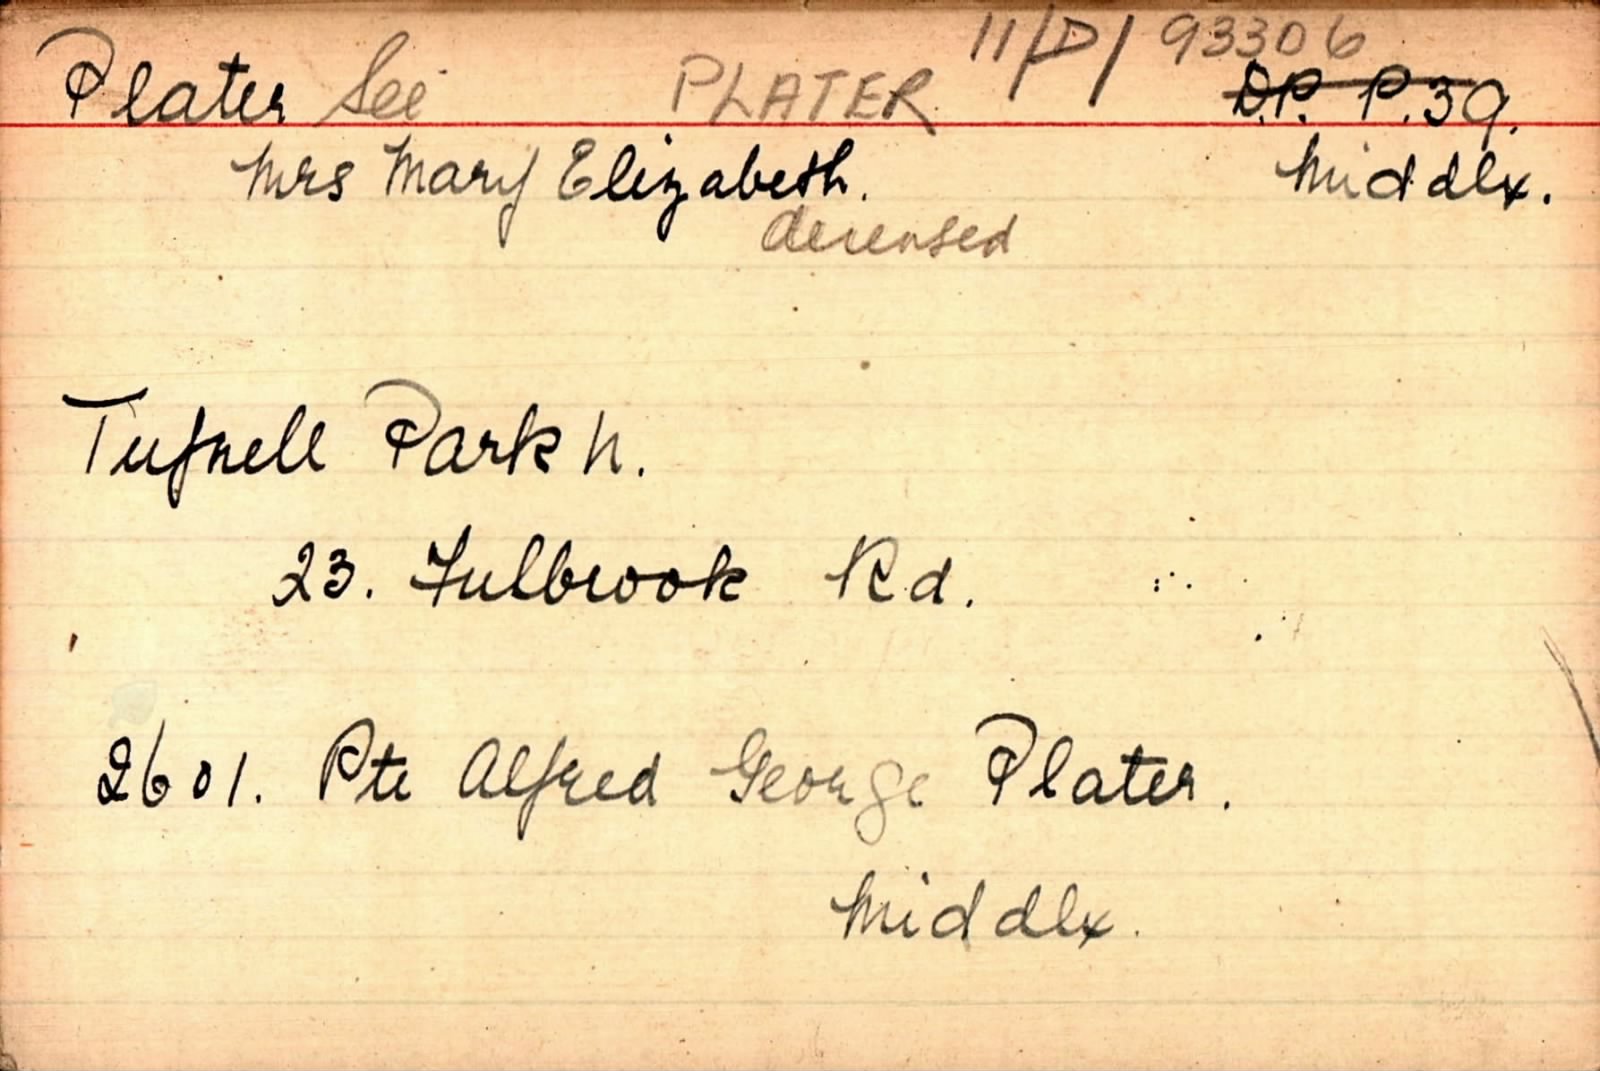 11/D/93306
Plater See PLATER D.P. P.39.
Mrs Mary Elizabeth. Middlx.
deceased
Tufnell Park N.
23. Fulbrook Rd.
2601. Pte Alfred George Plater.
Middlx.